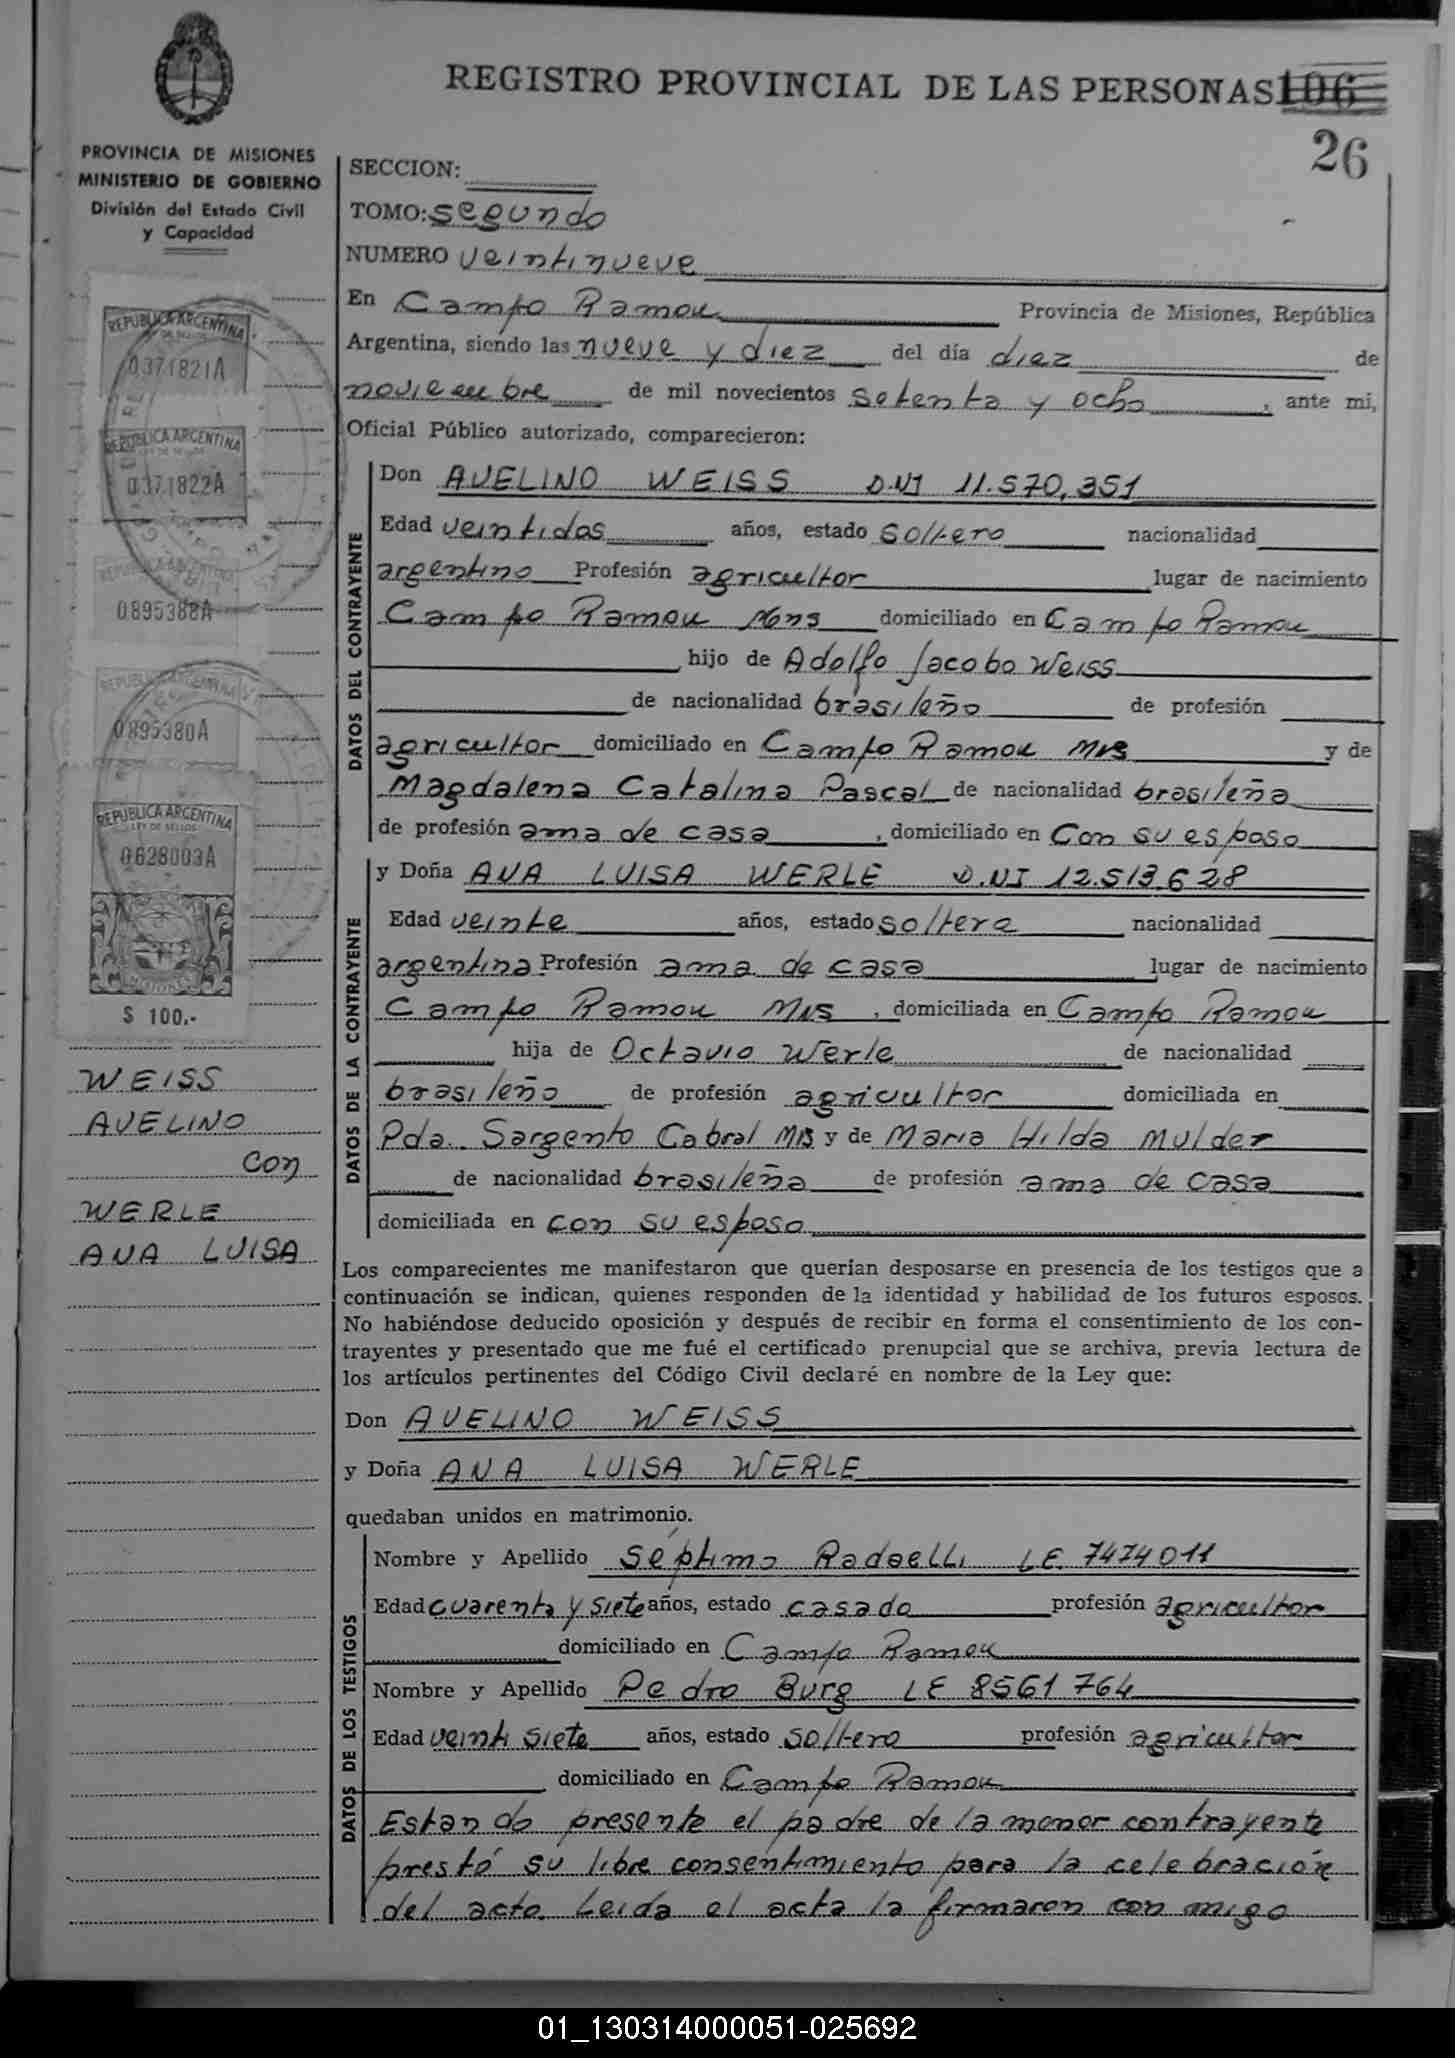 REGISTRO PROVINCIAL DE LAS PERSONAS 106
26
PROVINCIA DE MISIONES
MINISTERIO DE GOBIERNO
División del Estado Civil
y Capacidad
REPUBLICA ARGENTINA
0371821A
REPUBLICA ARGENTINA
LEY DE SELLOS
0371822A
REPUBLICA ARGENTINA
0895388A
REPUBLICA ARGENTINA
0895380A
REPUBLICA ARGENTINA
LEY DE SELLOS
0628003A
MISIONES
$ 100.-
WEISS
AVELINO
con
WERLE
ANA LUISA
SECCION:
TOMO: segundo
NUMERO veintinueve
En Campo Ramon Provincia de Misiones, República
Argentina, siendo las nueve y diez del día diez de
noviembre de mil novecientos setenta y ocho, ante mi,
Oficial Público autorizado, comparecieron:
DATOS DEL CONTRAYENTE
Don AVELINO WEISS D.NI 11.570,351
Edad veintidos años, estado soltero nacionalidad
argentino Profesión agricultor lugar de nacimiento
Campo Ramon Mns domiciliado en Campo Ramon
hijo de Adolfo Jacobo Weiss
de nacionalidad brasileño de profesión
agricultor domiciliado en Campo Ramon Mns y de
Magdalena Catalina Pascal de nacionalidad brasileña
de profesión ama de casa, domiciliado en Con su esposo
DATOS DE LA CONTRAYENTE
y Doña ANA LUISA WERLE D.NI 12.513.628
Edad veinte años, estado soltera nacionalidad
argentina Profesión ama de casa lugar de nacimiento
Campo Ramon Mns, domiciliada en Campo Ramon
hija de Octavio Werle de nacionalidad
brasileño de profesión agricultor domiciliada en
Pda. Sargento Cabral Mns y de Maria Hilda Mulder
de nacionalidad brasileña de profesión ama de casa
domiciliada en con su esposo
Los comparecientes me manifestaron que querían desposarse en presencia de los testigos que a
continuación se indican, quienes responden de la identidad y habilidad de los futuros esposos.
No habiéndose deducido oposición y después de recibir en forma el consentimiento de los con-
trayentes y presentado que me fué el certificado prenupcial que se archiva, previa lectura de
los artículos pertinentes del Código Civil declaré en nombre de la Ley que:
Don AVELINO WEISS
y Doña ANA LUISA WERLE
quedaban unidos en matrimonio.
DATOS DE LOS TESTIGOS
Nombre y Apellido Séptimo Radaelli LE. 7474011
Edad cuarenta y siete años, estado casado profesión agricultor
domiciliado en Campo Ramon
Nombre y Apellido Pedro Burg LE 8561764
Edad veinti siete años, estado soltero profesión agricultor
domiciliado en Campo Ramon
Estando presente el padre de la menor contrayente
prestó su libre consentimiento para la celebración
del acto. Leida el acta la firmaron con migo
01_130314000051-025692